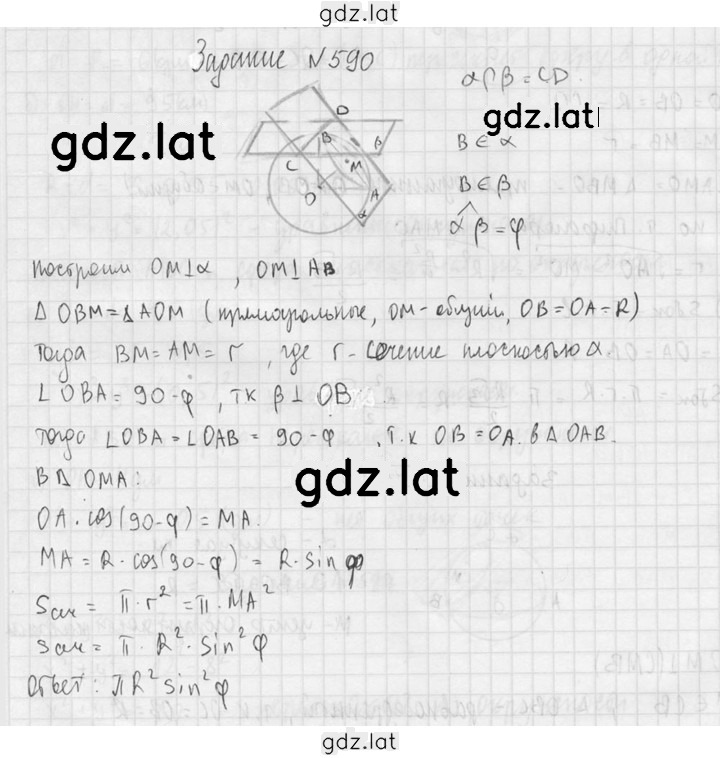 gdz.lat
Задание №590
α∩β = CD.
gdz.lat
gdz.lat
D
B
β
C
M
O
A
α
B ∈ α
B ∈ β
α^β = φ
построим OM⊥α , OM⊥AB
Δ OBM = Δ AOM (прямоугольные, OM - общий, OB = OA = R)
Тогда BM = AM = r , где r - сечение плоскостью α
∠ OBA = 90 - φ , тк β ⊥ OB
Тогда ∠OBA = ∠OAB = 90 - φ , т.к OB = OA. в Δ OAB.
В Δ OMA:
gdz.lat
OA · cos(90-φ) = MA.
MA = R · cos(90-φ) = R · sin φ
Sсеч = π · r² = π · MA²
Sсеч = π · R² · sin² φ
Ответ: πR² sin² φ
gdz.lat